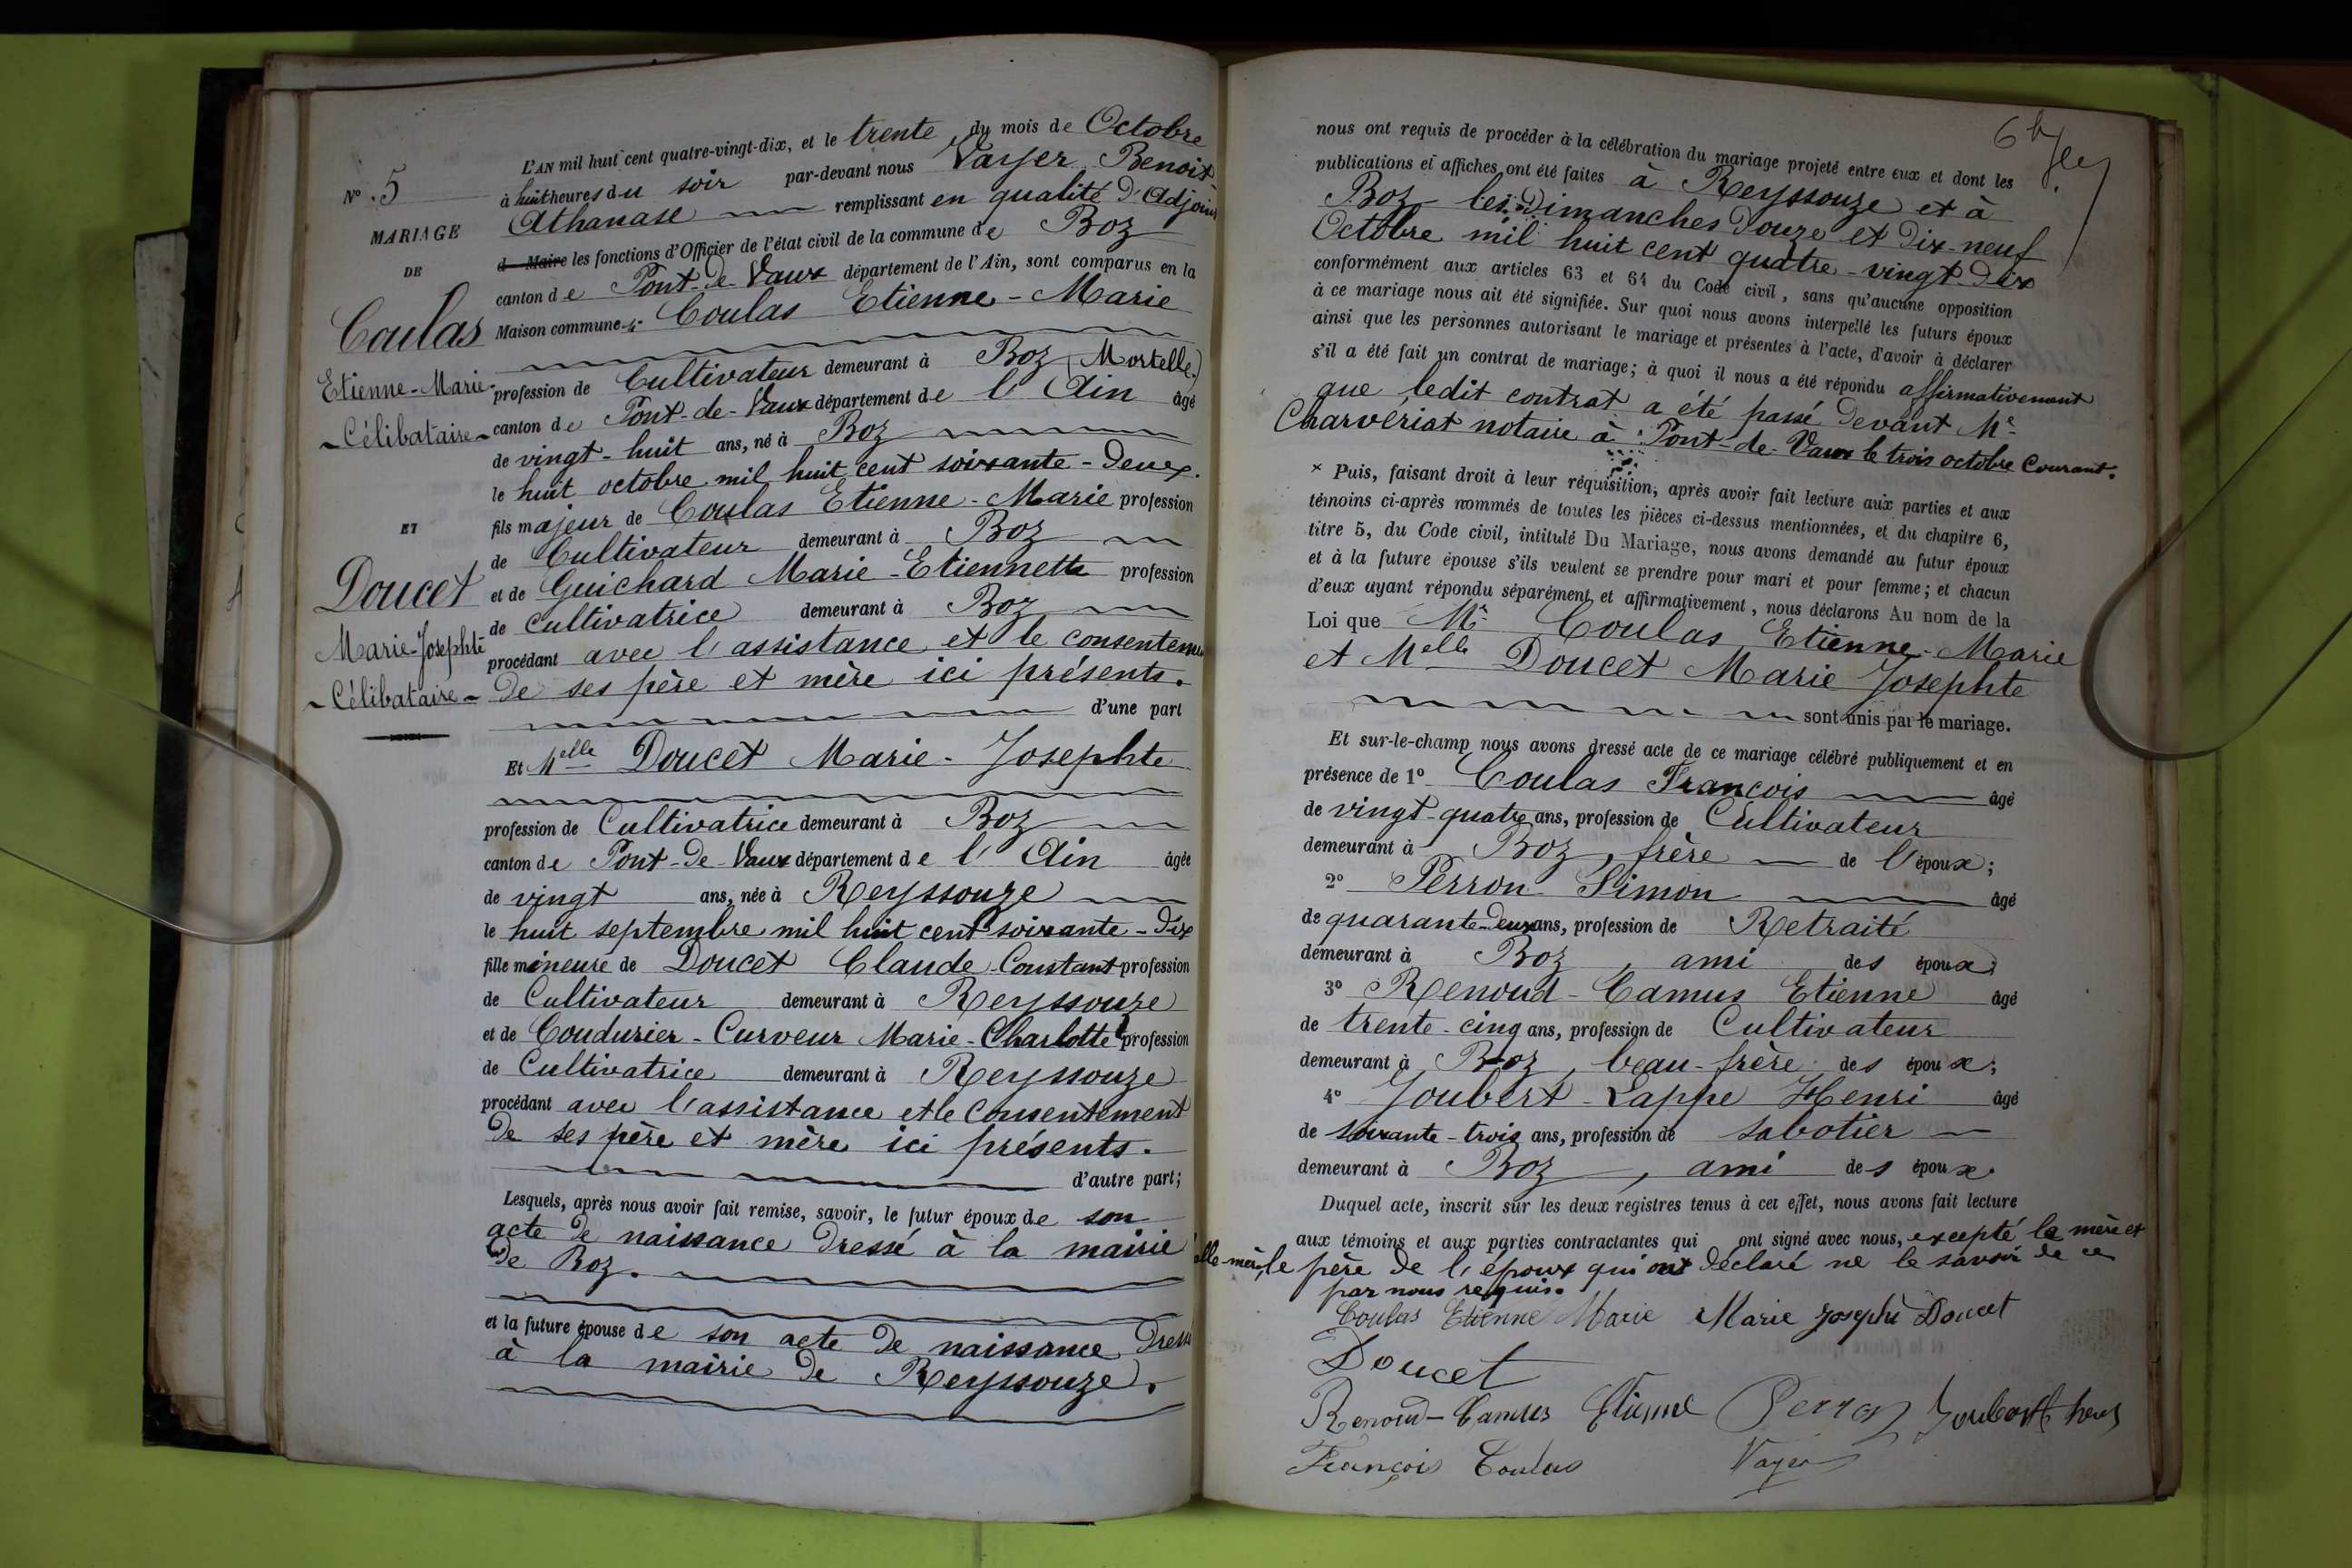 N° 5
MARIAGE
DE
Coulas
Etienne-Marie
Célibataire
ET
Doucet
Marie-Josephte
Célibataire
L'AN mil huit cent quatre-vingt-dix, et le trente du mois de Octobre
à huit heures du soir par-devant nous Vayer Benoit-
Athanase remplissant en qualité d'Adjoint
d Maire les fonctions d'Officier de l'état civil de la commune de Boz
canton de Pont-de-Vaux département de l'Ain, sont comparus en la
Maison commune Coulas Etienne-Marie
profession de Cultivateur demeurant à Boz (Mortelle)
canton de Pont-de-Vaux département de l'Ain âgé
de vingt-huit ans, né à Boz
le huit octobre mil huit cent soixante-deux.
fils majeur de Coulas Etienne-Marie profession
de Cultivateur demeurant à Boz
et de Guichard Marie-Etiennette profession
de cultivatrice demeurant à Boz
procédant avec l'assistance et le consenteme
de ses père et mère ici présents.
d'une part
Et Melle Doucet Marie-Josephte
profession de Cultivatrice demeurant à Boz
canton de Pont-de-Vaux département de l'Ain âgée
de vingt ans, née à Reyssouze
le huit septembre mil huit cent soixante-dix
fille mineure de Doucet Claude-Constant profession
de Cultivateur demeurant à Reyssouze
et de Coudurier-Curveur Marie-Charlotte profession
de Cultivatrice demeurant à Reyssouze
procédant avec l'assistance et le Consentement
de ses père et mère ici présents.
d'autre part;
Lesquels, après nous avoir fait remise, savoir, le futur époux de son
acte de naissance dressé à la mairie
de Boz.
et la future épouse de son acte de naissance dressé
à la mairie de Reyssouze.
6
nous ont requis de procéder à la célébration du mariage projeté entre eux et dont les
publications et affiches ont été faites à Reyssouze et à
Boz les Dimanches douze et dix-neuf
Octobre mil huit cent quatre-vingt-dix
conformément aux articles 63 et 64 du Code civil, sans qu'aucune opposition
à ce mariage nous ait été signifiée. Sur quoi nous avons interpellé les futurs époux
ainsi que les personnes autorisant le mariage et présentes à l'acte, d'avoir à déclarer
s'il a été fait un contrat de mariage; à quoi il nous a été répondu affirmativement
que ledit contrat a été passé devant Me
Charvériat notaire à Pont-de-Vaux le trois octobre Courant.
* Puis, faisant droit à leur réquisition, après avoir fait lecture aux parties et aux
témoins ci-après nommés de toutes les pièces ci-dessus mentionnées, et du chapitre 6,
titre 5, du Code civil, intitulé Du Mariage, nous avons demandé au futur époux
et à la future épouse s'ils veulent se prendre pour mari et pour femme; et chacun
d'eux ayant répondu séparément et affirmativement, nous déclarons Au nom de la
Loi que Mr Coulas Etienne-Marie
et Melle Doucet Marie Josephte
sont unis par le mariage.
Et sur-le-champ nous avons dressé acte de ce mariage célébré publiquement et en
présence de 1° Coulas François âgé
de vingt-quatre ans, profession de Cultivateur
demeurant à Boz, frère de l'époux;
2° Perron Simon âgé
de quarante-deux ans, profession de Retraité
demeurant à Boz, ami des époux;
3° Renoud-Camus Etienne âgé
de trente-cinq ans, profession de Cultivateur
demeurant à Boz, beau-frère des époux;
4° Joubert-Lappe Henri âgé
de soixante-trois ans, profession de Sabotier
demeurant à Boz, ami des époux
Duquel acte, inscrit sur les deux registres tenus à cet effet, nous avons fait lecture
aux témoins et aux parties contractantes qui ont signé avec nous, excepté la mère et
elle-mère, le père de l'époux qui ont déclaré ne le savoir de ce
par nous requis.
Coulas Etienne Marie Marie josephte Doucet
Doucet
Renoud-Camus Etienne Perron Joubert henri
François Coulas Vayer